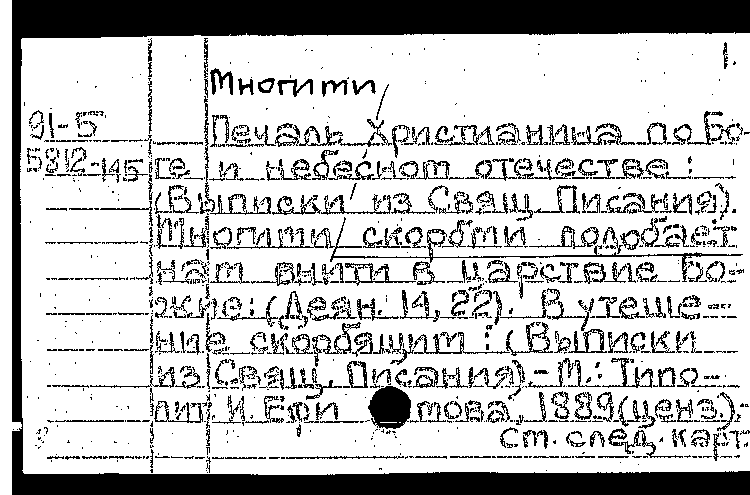 1.
Многими
91-5
Печаль Христианина по Бо-
5812-145
ге и небесном отечестве:
(Выписки из Свящ. Писания).
Многими скорбми подобает
нам внити в царствие Бо-
жие: (Деян. 14, 22). В утеше-
ние скорбящим: (Выписки
из Свящ. Писания).- М.: Типо-
лит. И. Ефимова, 1889(ценз.).-
см. след. карт.